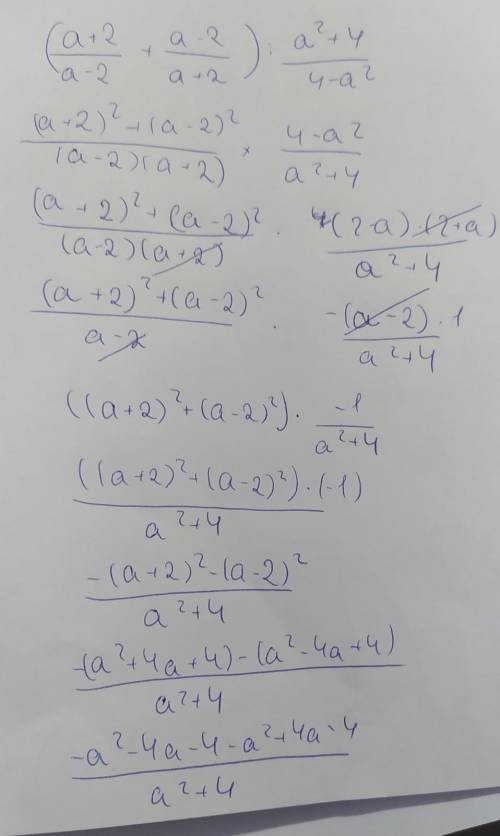 (a+2/a-2 + a-2/a+2) : a²+4/4-a²
(a+2)²+(a-2)²/(a-2)(a+2) × 4-a²/a²+4
(a+2)²+(a-2)²/(a-2)(a+2) · (2-a)(2+a)/a²+4
(a+2)²+(a-2)²/a-2 · -(a-2)·1/a²+4
((a+2)²+(a-2)²)· -1/a²+4
((a+2)²+(a-2)²)·(-1)/a²+4
-(a+2)²-(a-2)²/a²+4
-(a²+4a+4)-(a²-4a+4)/a²+4
-a²-4a-4-a²+4a-4/a²+4